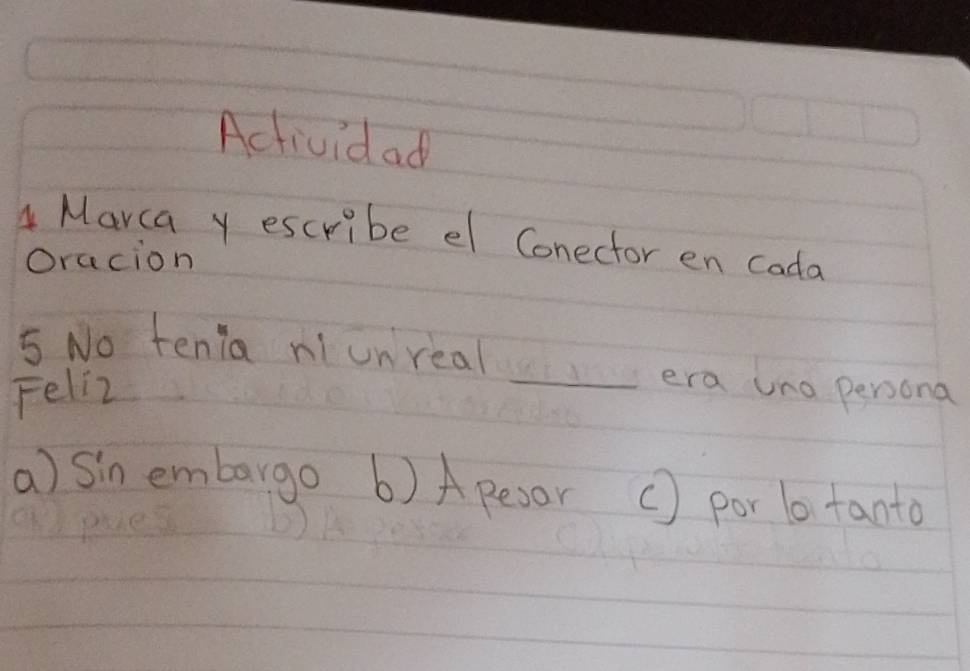 Actividad
1 Marca y escribe el Conector en cada
Oracion
5 No tenia ni un real ______ era una persona
Feliz
a) Sin embargo b) A pesar c) por lo tanto